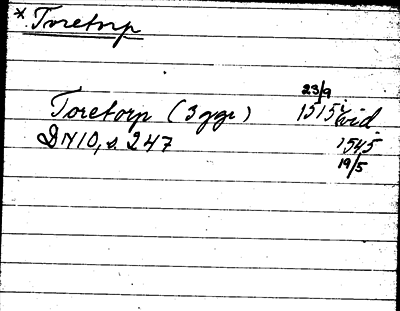 * Toretorp
23/9
Toretorp (3 ggr) 1515 vid.
DN 10, s. 247 1545
19/5